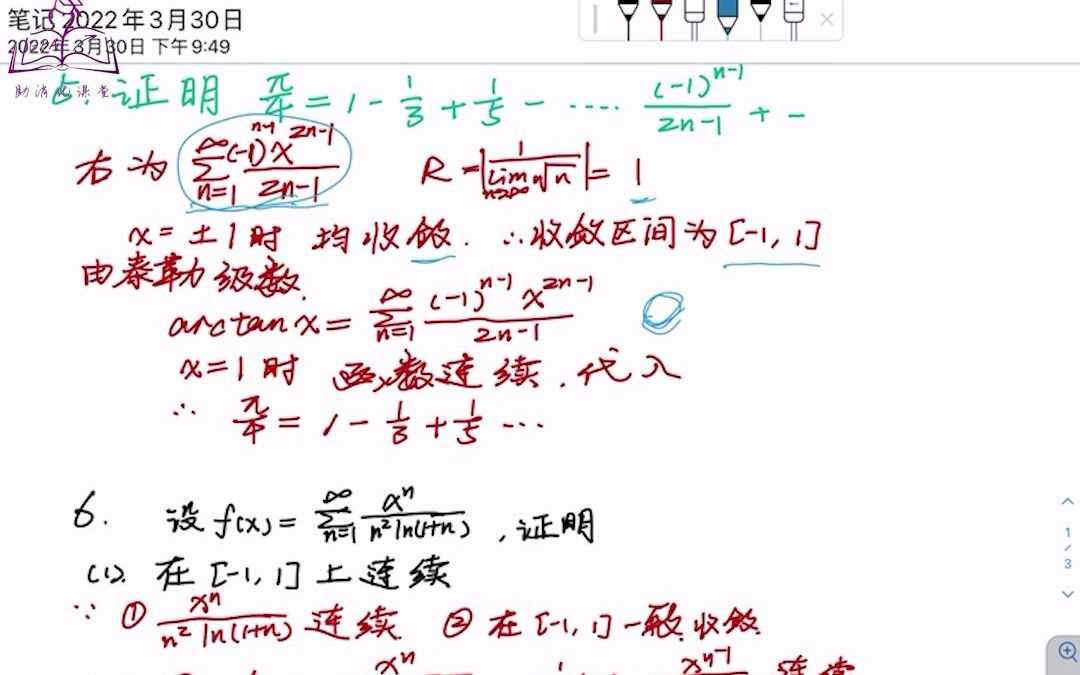 笔记 2022年3月30日
2022年3月30日 下午9:49
助消化课堂
5. 证明 π/4 = 1 - 1/3 + 1/5 - ···· (-1)^{n-1}/(2n-1) + -
右为 ∑_{n=1}^{∞} (-1)^{n-1} x^{2n-1}/(2n-1) R = |1/(lim_{n→∞} ⁿ√n)| = 1
x = ±1时 均收敛. ∴收敛区间为[-1, 1]
由泰勒级数.
arctan x = ∑_{n=1}^{∞} (-1)^{n-1} x^{2n-1}/(2n-1)
x=1时 函数连续, 代入
∴ π/4 = 1 - 1/3 + 1/5 ···
6. 设 f(x) = ∑_{n=1}^{∞} x^n/(n² ln(1+n)) , 证明
(1). 在[-1, 1]上连续
∵ ① x^n/(n² ln(1+n)) 连续. ② 在[-1, 1]一致收敛.
x^n x^{n-1} 连续
1
/
3